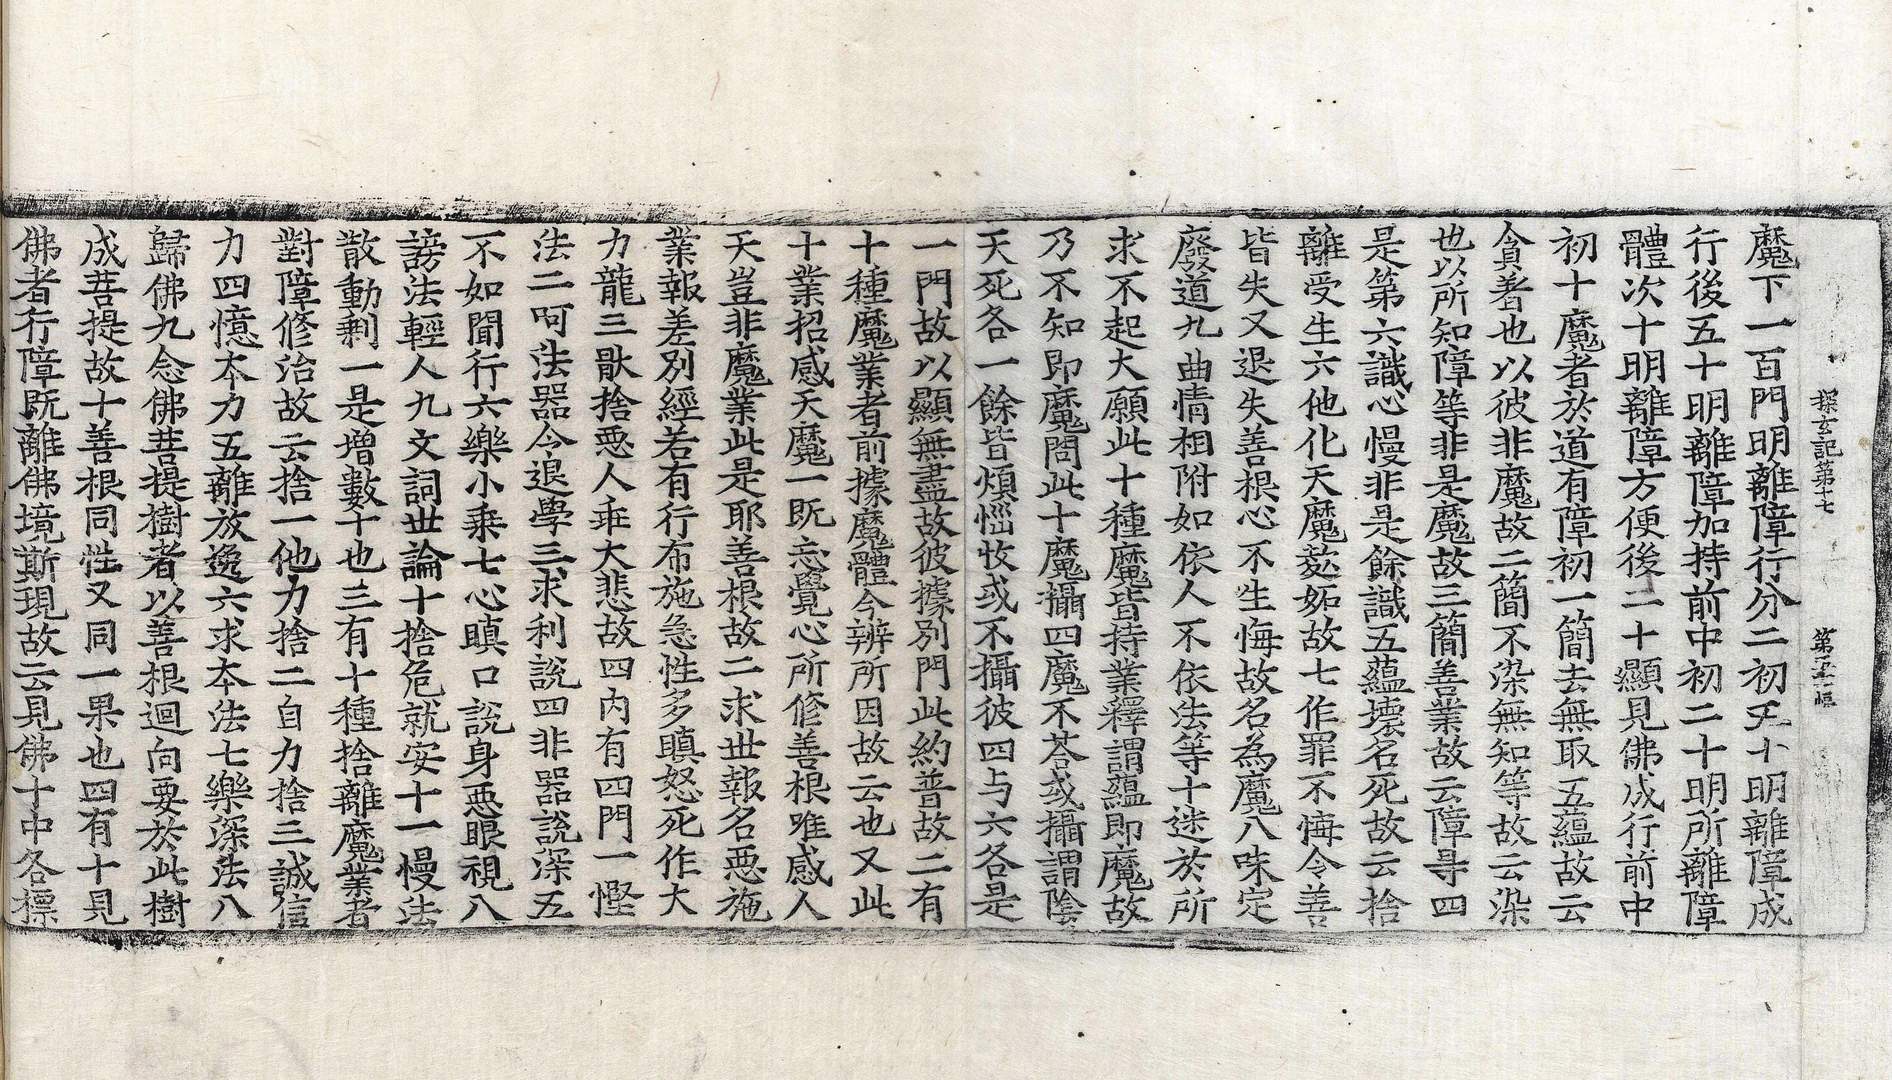 探玄記第十七 第三十二幅
魔下一百門明離障行分二初五十明離障成
行後五十明離障加持前中初二十明所離障
體次十明離障方便後二十顯見佛成行前中
初十魔者於道有障初一簡去無取五蘊故云
貪著也以彼非魔故二簡不染無知等故云染
也以所知障等非是魔故三簡善業故云障㝵四
是第六識心慢非是餘識五蘊壞名死故云捨
離受生六他化天魔憨妬故七作罪不悔令善
皆失又退失善根心不生悔故名為魔八味定
廢道九曲情相附如依人不依法等十迷於所
求不起大願此十種魔皆持業釋謂蘊即魔故
乃不知即魔問此十魔攝四魔不荅或攝謂陰
天死各一餘皆煩惱攷或不攝彼四与六各是
一門故以顯無盡故彼據別門此約普故二有
十種魔業者前據魔體今辨所因故云也又此
十業招感天魔一既忘覺心所修善根唯感人
天豈非魔業此是耶善根故二求世報名惡施
業報差別經若有行布施急性多瞋怒死作大
力龍三猒捨惡人乖大悲故四內有四門一慳
法二呵法器令退學三求利說四非器說深五
不如聞行六樂小乘七心瞋口說身惡眼視八
謗法輕人九文詞世論十捨危就安十一慢法
散動剰一是增數十也三有十種捨離魔業者
對障修治故云捨一他力捨二自力捨三誠信
力四憶本力五離放逸六求本法七樂深法八
歸佛九念佛菩提樹者以善根迴向要於此樹
成菩提故十善根同性又同一果也四有十見
佛者行障既離佛境斯現故云見佛十中各標